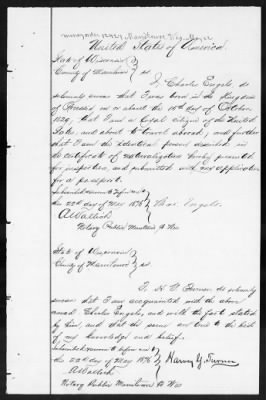 United States of America.
State of Wisconsin
County of Manitowoc } ss
I, Charles Engels, do
solemnly swear that I was born in the Kingdom
of Prussia on or about the 18th day of October
1829, that I am a legal citizen of the United
States, and about to travel abroad, and further
that I am the identical person described in
the certificate of naturalization hereby presented
for inspection, and submitted with my application
for a passport.
Subscribed & sworn to before me
the 22nd day of May 1876 } Chas Engels.
Notary Public Manitowoc Co Wis
State of Wisconsin
County of Manitowoc } ss.
I, H. Turner do solemnly
swear that I am acquainted with the above
named Charles Engels, and with the facts stated
by him, and that the same are true to the best
of my knowledge and belief.
Subscribed & sworn to before me
the 22nd day of May 1876 } Harvey Turner
Notary Public Manitowoc Co Wis